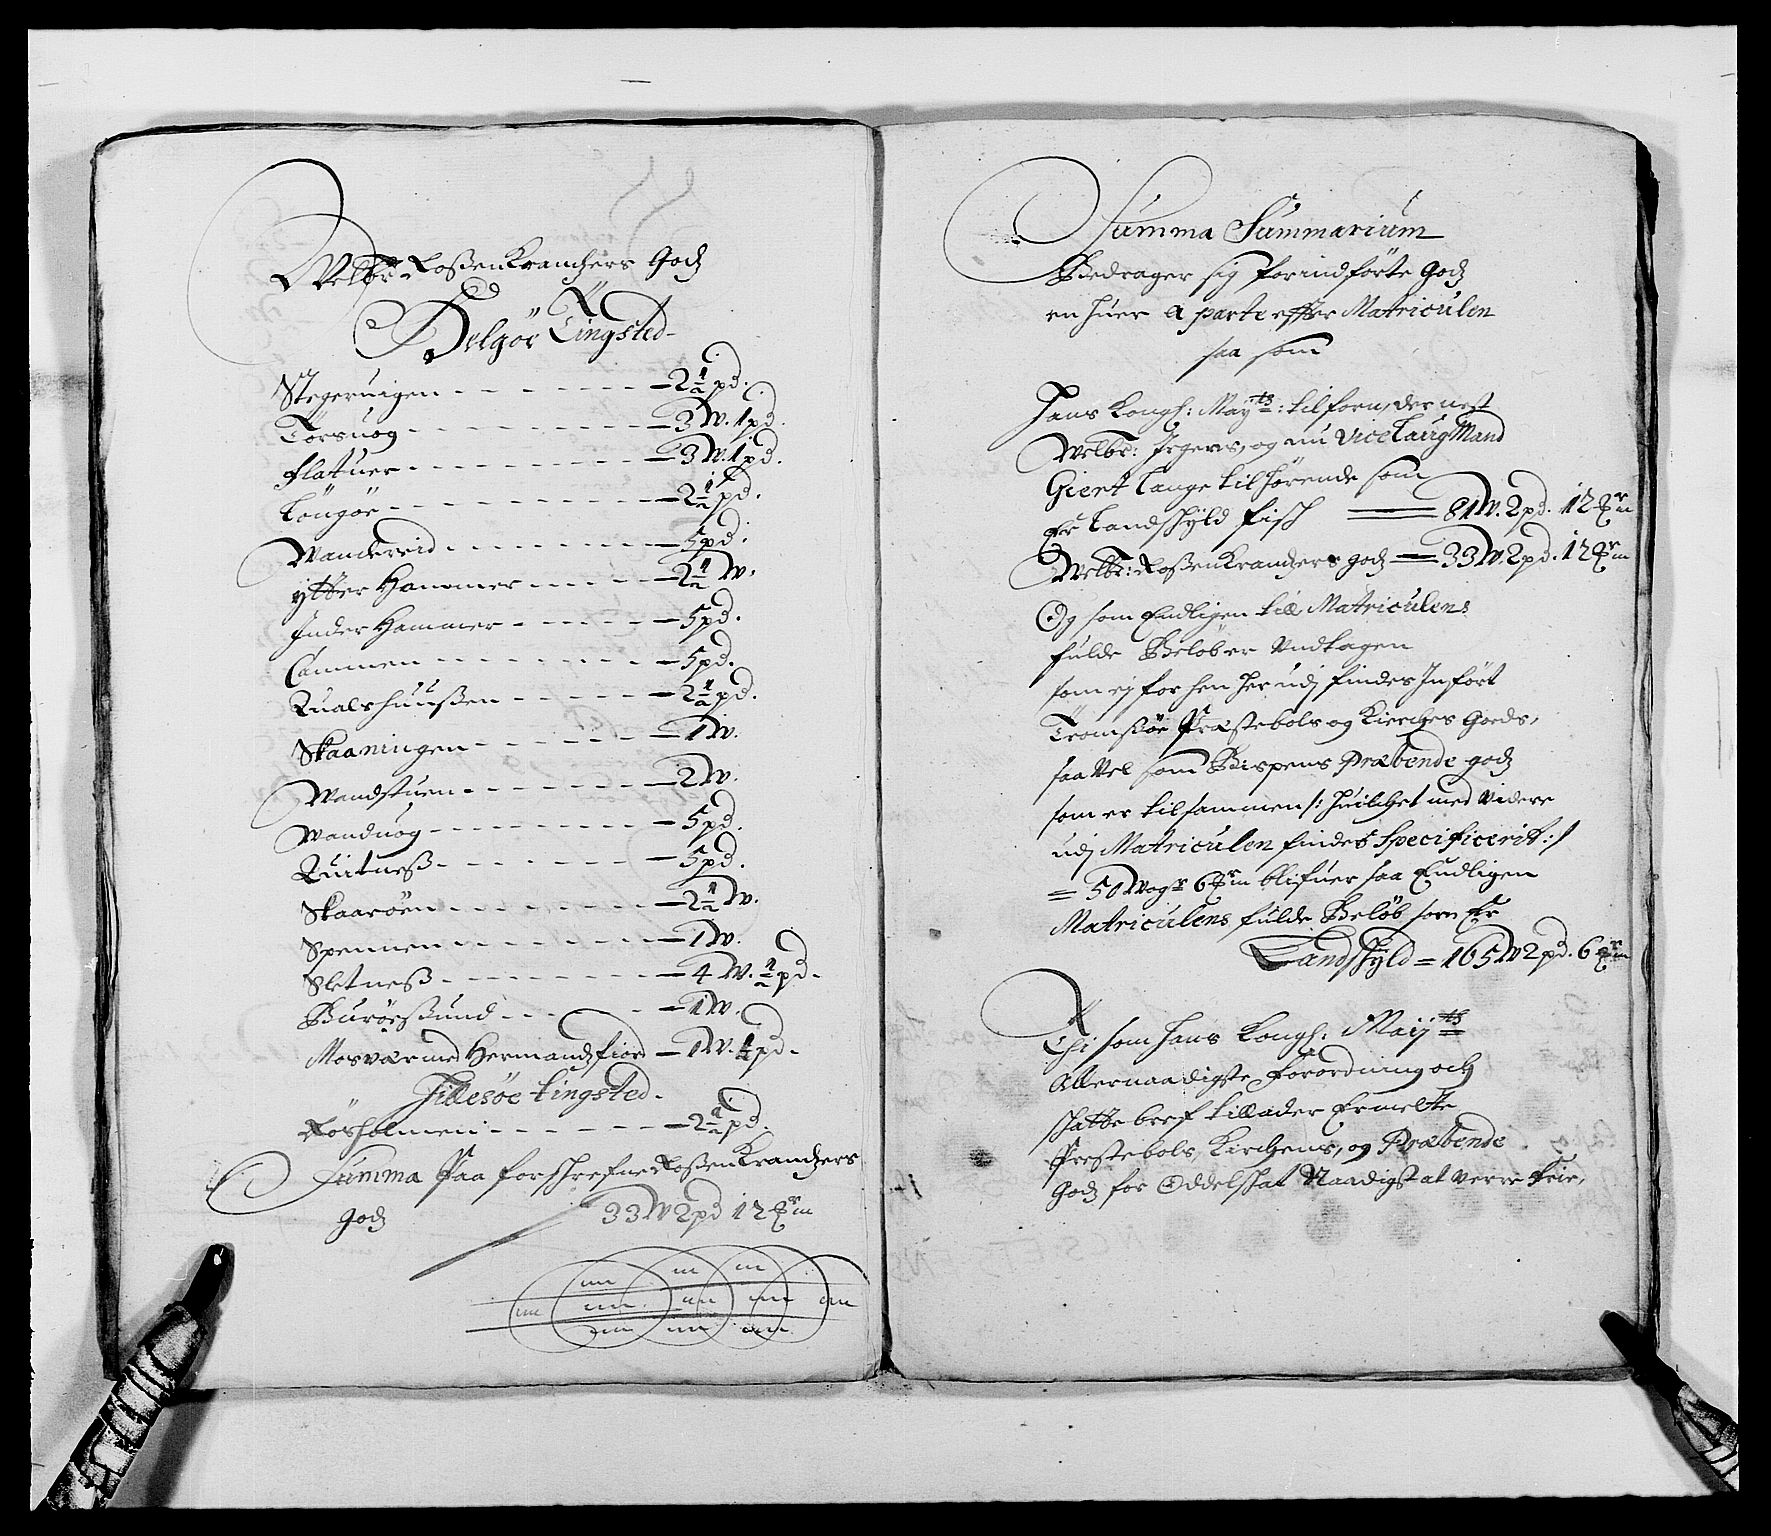 Welbr: Rosenkrantzers Godz
Helgöe Tingsted
Stegeruigen - - - - - - 2½ pd.
Torsuog - - - - - - 3 W. 1 pd.
Flatuer - - - - - - 3 W. 1 pd.
Längöe - - - - - - 2½ pd.
Wandereid - - - - - - 5 pd.
ytter Hammer - - - - 2½ W.
Inder Hammer - - - - 5 pd.
Cammen - - - - - - 5 pd.
Qualshuussen - - - - 2½ pd.
Skaaningen - - - - - 1 W.
Wandstuen - - - - - 2 W.
Wanduog - - - - - - 5 pd.
Quitness - - - - - - 5 pd.
Skaaröen - - - - - - 2½ W.
Spennen - - - - - - 1 W.
Sletness - - - - - - 4 W. ½ pd.
Buröesund - - - - - 1 W.
Mosvær med Hermandzfiord - 1 W. ½ pd.
Hillesöe Tingsted.
Rösholmen - - - - - 2½ pd.
Summa Paa forschrefne Rosenkrantzers
Godz 33 W 2 pd 12 m
Summa Summarium
Bedrager sig forindförte Godz
en huer a parte effter Matriculen
saa som
Hans Kongh: Mayts: tilforn, der nest
Welbr: Irgens, og nu Vice Laug Mand
Giert Lange tilhörende som
Er Landschyld fisch == 81 W. 2 pd. 12 m
Welbr: Rosenkrantzers godz == 33 W. 2 pd. 12 m
Og som Endligen till Matriculens
fulde Beløb er Undtagen
som ej for hen her udj findes Inført
Tromsöe Præstebols og Kierches Goeds,
saa Vel som Bispens Præbende godz
som er tilsammen /: huilchet med Videre
udj Matriculen findes Specificerit :/
= 50 Wogr 6 m blifuer saa Endligen
Matriculens fulde Beløb som Er
Landschyld = 165 W 2 pd. 6 m
Thi som hans Kongh: Maijts
Allernaadigste forordning och
schatte bref tillader Ermelte
Prestebols, Kirchens, og Præbende
Godz for Oddelschat Naadigst at verre frie,